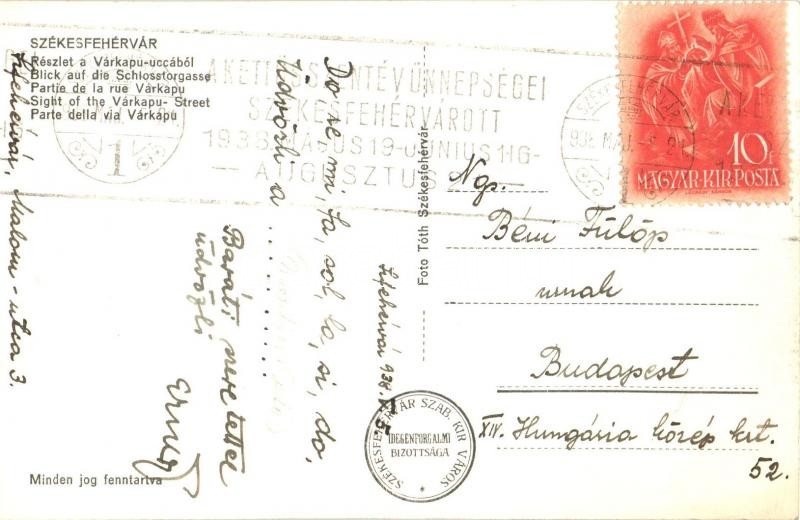 SZÉKESFEHÉRVÁR
Részlet a Várkapu-uccából
Blick auf die Schlosstorgasse
Partie de la rue Várkapu
Sight of the Várkapu- Street
Parte della via Várkapu
A KETTŐS SZENTÉV ÜNNEPSÉGEI
SZÉKESFEHÉRVÁROTT
1938 MÁJUS 19-JÚNIUS 1-16-
AUGUSZTUS
938 MAJ.
10f
MAGYAR·KIR·POSTA
Szfehérvár, Malom-utca 3.
Do re mi, fa, sol, la, si, do,
Üdvözli a ..........
Baráti szeretettel
üdvözli
Ernő
Szfehérvár 938. V. 5
Foto Tóth Székesfehérvár
Ngs.
Béni Fülöp
urnak
Budapest
XIV. Hungária közép krt.
52.
SZÉKESFEHÉRVÁR SZAB. KIR. VÁROS
IDEGENFORGALMI
BIZOTTSÁGA
Minden jog fenntartva